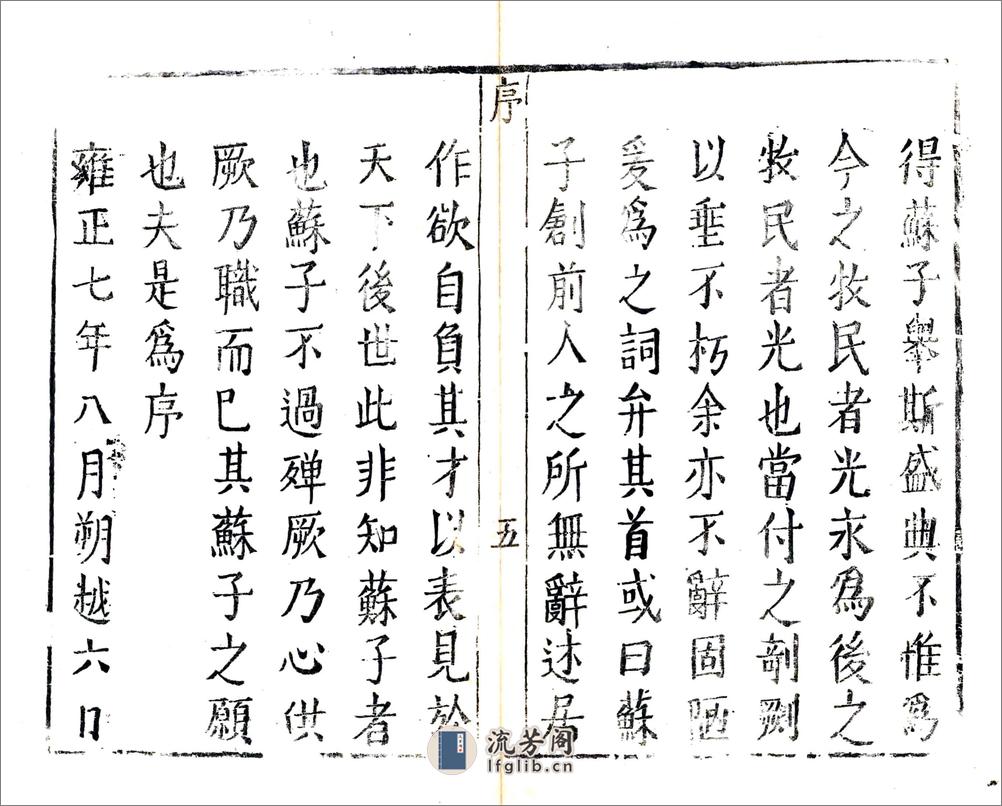 得蘇子舉斯盛典不惟爲
今之牧民者光永爲後之
牧民者光也當付之剞劂
以垂不朽余亦不辭固陋
爰爲之詞弁其首或曰蘇
子創前人之所無辭述居
序
五
作欲自負其才以表見於
天下後世此非知蘇子者
也蘇子不過殫厥乃心供
厥乃職而已其蘇子之願
也夫是爲序
雍正七年八月朔越六日
流芳阁
lfglib.cn